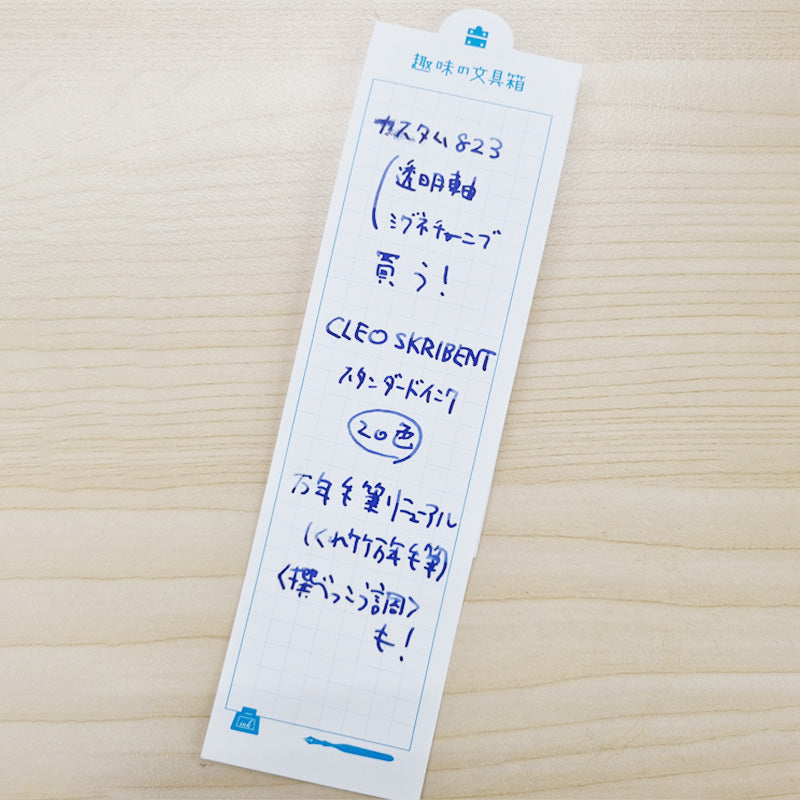 趣味の文具箱
カスタム823
(透明軸
シグネチャーニブ
買う!
CLEO SKRIBENT
スタンダードインク
20色
万年毛筆リニューアル
(くれ竹万年毛筆)
べっこう調>
も!
ink